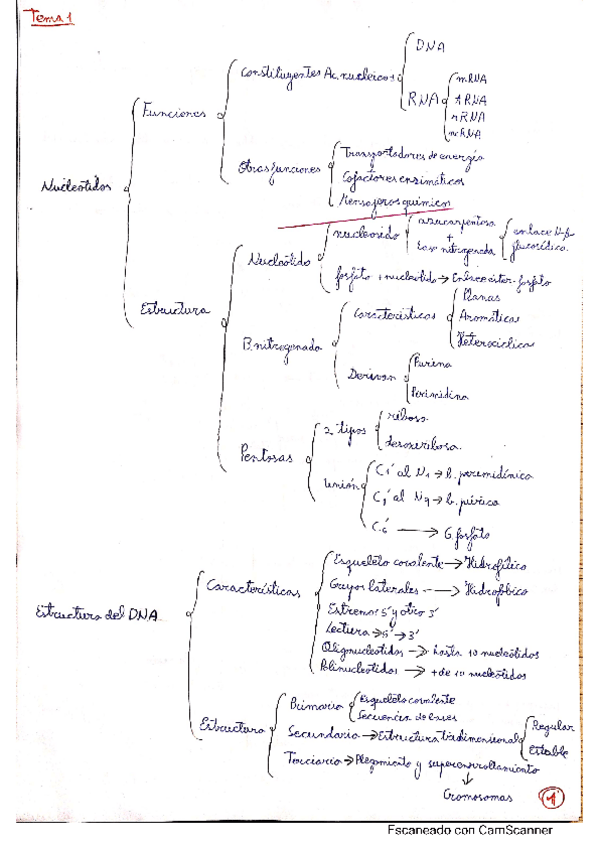 Tema 1
Nucleótidos
Funciones
Constituyentes Ac. nucleicos
DNA
RNA
mRNA
tRNA
rRNA
ncRNA
Otras funciones
Transportadores de energía
Cofactores enzimáticos
Mensajeros químicos
Estructura
Nucleótido
nucleósido
azúcar pentosa
+
base nitrogenada
enlace N-β-
glucosídico
fosfato + nucleótido → Enlace éster-fosfato
B. nitrogenada
Características
Planas
Aromáticas
Heterocíclica
Derivan
Purina
Pirimidina
Pentosas
2 tipos
ribosa
desoxirribosa
Unión
C1' al N1 → b. pirimidínica
C1' al N9 → b. púrica
→ G. fosfato
Estructura del DNA
Características
Esqueleto covalente → Hidrofílico
Grupos laterales → Hidrofóbico
Extremos 5' y otro 3'
Lectura → 5' → 3'
Oligonucleótidos → hasta 10 nucleótidos
Polinucleótidos → + de 10 nucleótidos
Estructura
Primaria
Esqueleto covalente
Secuencia de bases
Secundaria → Estructura tridimensional
Regular
Estable
Terciario → Plegamiento y superenrollamiento
↓
Cromosomas
1
Escaneado con CamScanner